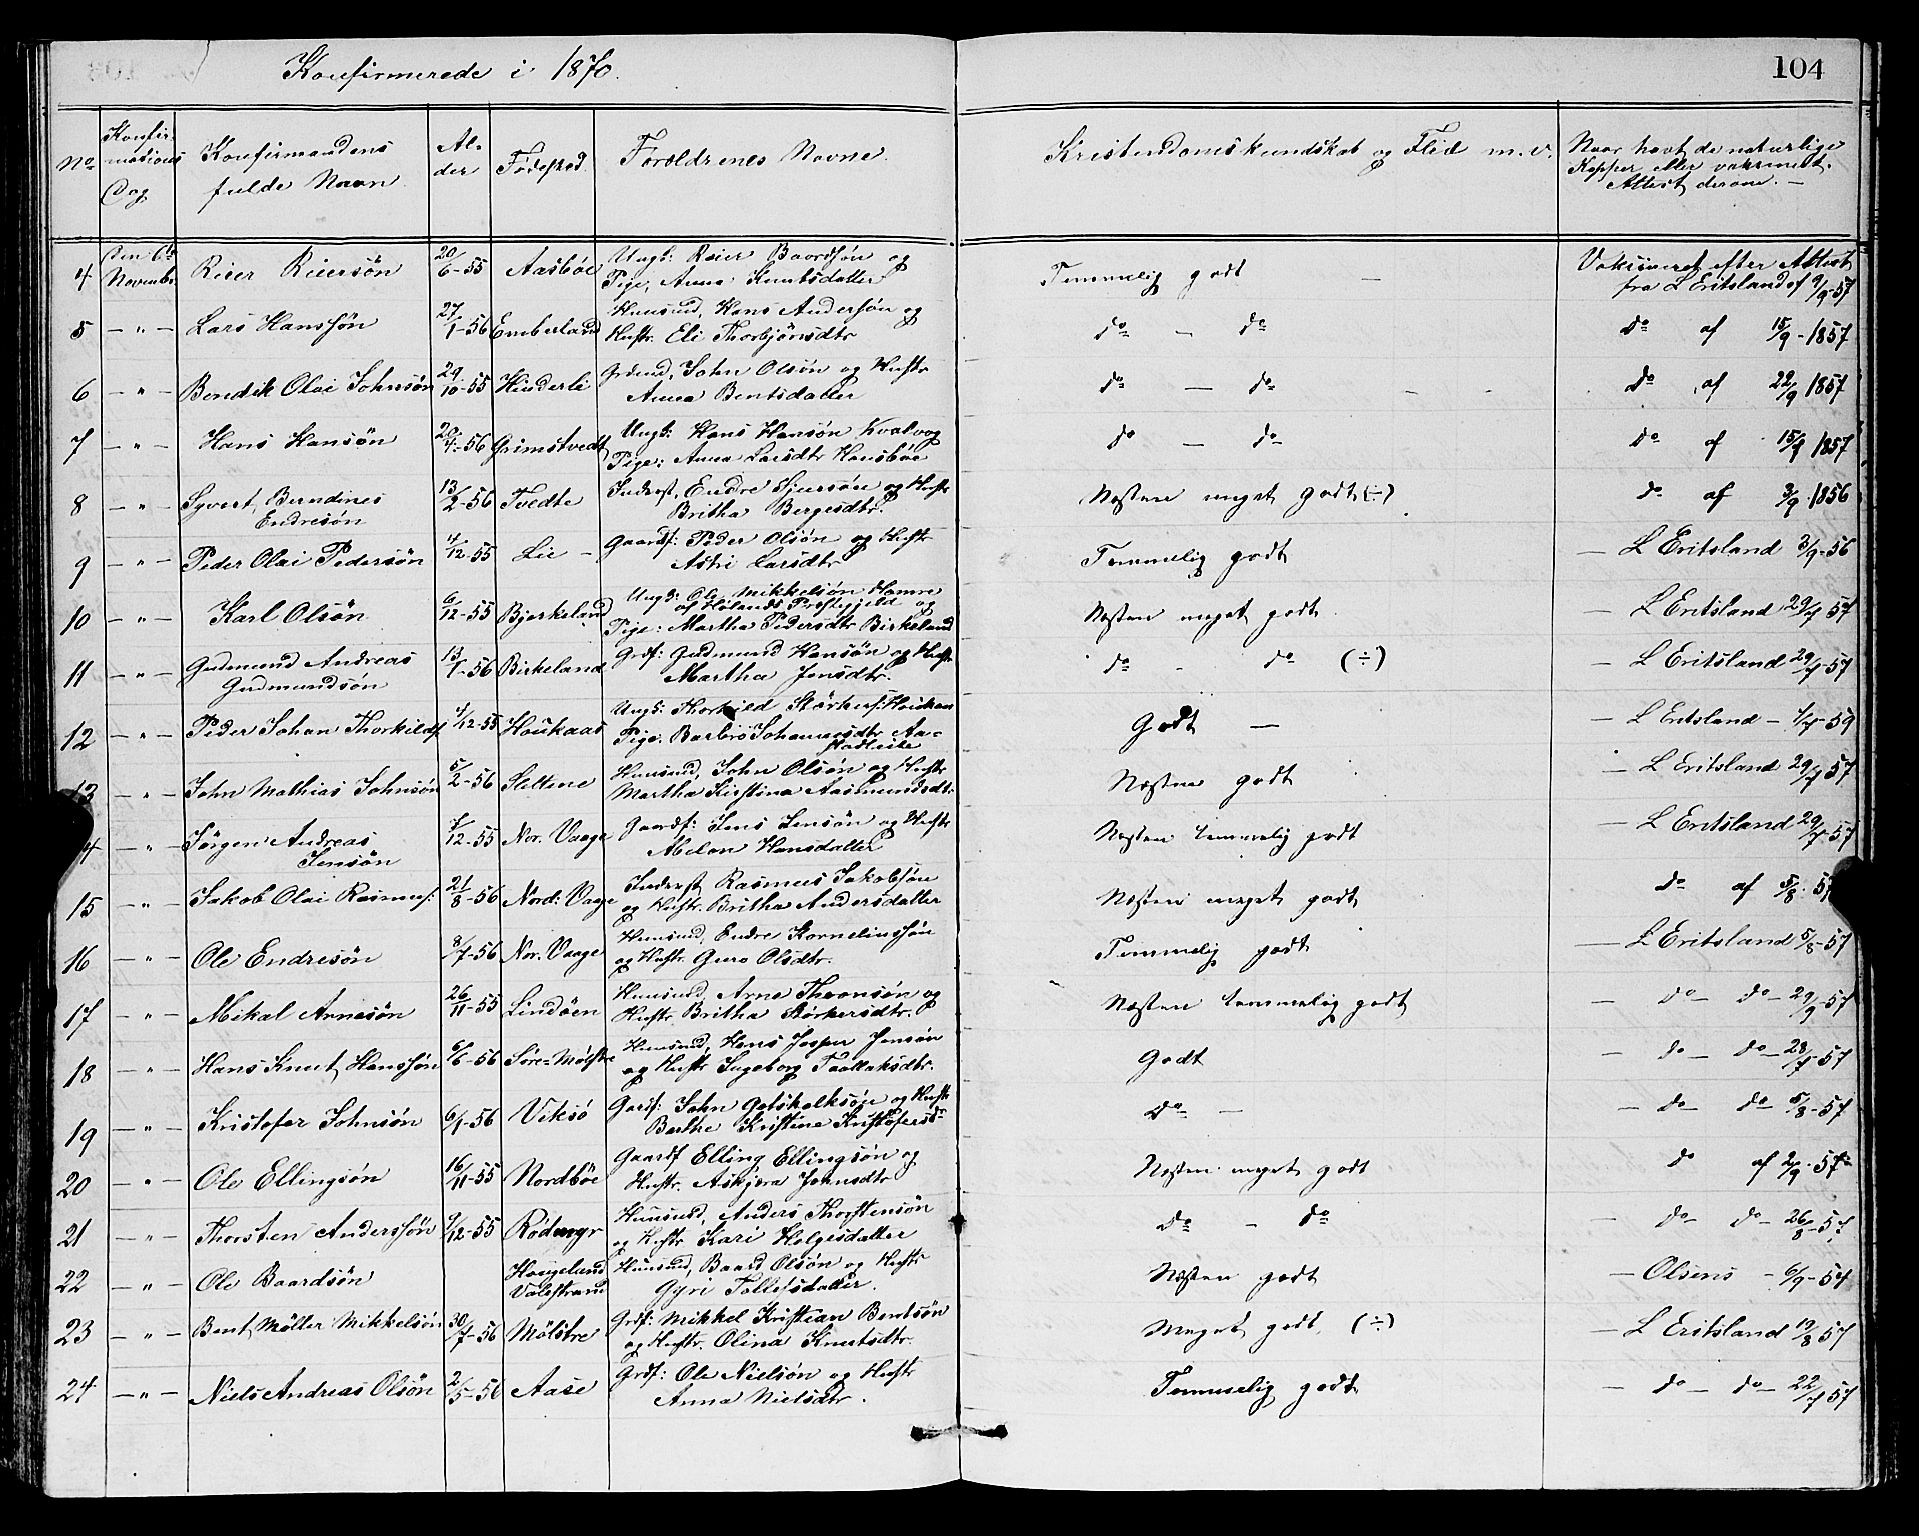 Konfirmerede i 1870.
104
No
Konfir-
mations
Dag
Konfirmandens
fulde Navn
Al-
der
Fødested
Forældrenes Navne.
Kristendomskundskab og Flid m. v.
Naar havt de naturlige
Kopper eller vaksineret.
Attest derom. —
4 Den 6te Novembr. Reier Reiersön 20/6-55 Aasböe Ungk: Reier Baardsøn og
Pige, Anna Knutsdatter
Temmelig godt —
Vaksineret efter Attest
fra L Eritsland af 9/9-57
5 — " — Lars Hanssøn 27/1-56 Emberland Huusmd, Hans Andersøn og
Hustr. Eli Thorbjörnsdtr
do — do
do af 15/9-1857
6 — " — Bendik Olai Johnsön 29/10-55 Hinderli Grdmd, John Olsön og Hustr
Anna Bentsdatter
do — do
do af 22/9 1857
7 — " — Hans Hansön 20/4-56 Grimstvedt Ungk: Hans Hansön Kvalvog
Pige: Anna Larsdtr Hausböe
do — do
do af 15/9 1857
8 — " — Syvert Berndines
Endresön 13/2-56 Tvedte Inderst, Endre Sjursön og Hustr
Britha Bergesdtr.
Næsten meget godt (÷)
do af 3/9 1856
9 — " — Peder Olai Pedersön 4/12-55 Lie — Gaardf: Peder Olsön og Hustr
Astri Larsdtr
Temmelig godt
— L Eritsland 3/9-56
10 — " — Karl Olsön 6/12-55 Bjerkeland Ungk: Ole Mikkelsön Hamre
af Hölands Prestegjeld og
Pige: Martha Pedersdtr Birkeland
Næsten meget godt.
— L Eritsland 29/7-57
11 — " — Gudmund Andreas
Gudmundsön 13/1-56 Birkeland Grdf: Gudmund Hansön og Hustr.
Martha Jensdtr.
do - do (÷)
— L Eritsland 29/7-57
12 — " — Peder Johan Thorkilds 4/12-55 Houkaas Ungk: Thorkild Störkers: Houkaas
Pige. Barbro Johannesdtr Aa-
Godt —
— L Eritsland — 1/7-59
13 — " — John Mathias Johnsön 5/2-56 Slettene Huusmd, John Olsön og Hustr
Martha Kirstina Aasmundsdt:
Næsten godt
— L Eritsland 29/7 57
4 — " — Jörgen Andreas
Jensön 7/12-55 Nor. Vaage Gaardf: Jens Jensön og Hustr
Abelon Hansdatter
Næsten temmelig godt
— L Eritsland 29/7-57
15 — " — Jakob Olai Rasmus: 21/8-56 Nord: Vaage Inderst Rasmus Jakobsön
og Hustr. Britha Andersdatter
Næsten meget godt
do af 5/8. 57
16 — " — Ole Endresön 8/7-56 Nor. Vaage Huusmd, Endre Korneliussön
og Hustr Guro Olsdtr.
Temmelig godt
— L Eritsland 5/8-57
17 — " — Mikal Arnesön 26/11-55 Lindöen Huusmd, Arne Theonsön og
Hustr. Britha Störkersdtr.
Næsten temmelig godt
— do — do — 29/9-57
18 — " — Hans Knut Hanssön 6/6-56 Söre-Mölstre Huusmd, Hans Jesper Jensön
og Hustr Ingeborg Taallaksdtr.
Godt
— do — do — 28/7-57
19 — " — Kristofer Johnsön 6/1-56 Viksö Gardf: John Gotskalksön og Hustr
Berthe Kristine Kristofersd-
do —
— do — do 5/8-57
20 — " — Ole Ellingsön 16/11-55 Nordböe Gaardf Elling Ellingsön og
Hustr. Askjera Johnsdtr
Næsten meget godt
do af 2/9-57
21 — " — Thorsten Anderssön 9/12-55 Rödmyr Huusmd, Anders Thorstensön
og Hustr Kari Helgesdatter
do — do
— do — do — 26/8-57
22 — " — Ole Baardsön Haugeland
Valestrand Huusmd, Baard Olsön og Hustr
Gyri Tollefsdatter.
Næsten godt
— Olsens — 6/9-57
23 — " — Bent Möller Mikkelsön 30/7-56 Mölstre Grdf: Mikkel Kristian Bentsön
og Hustr. Olina Knutsdtr.
Meget godt. (÷)
— L Eritsland 12/8 57
24 — " — Niels Andreas Olsön 2/5-56 Aase Grdf: Ole Nielsön og Hustr
Anna Nielsdtr.
Temmelig godt
— do — do — 22/7 57